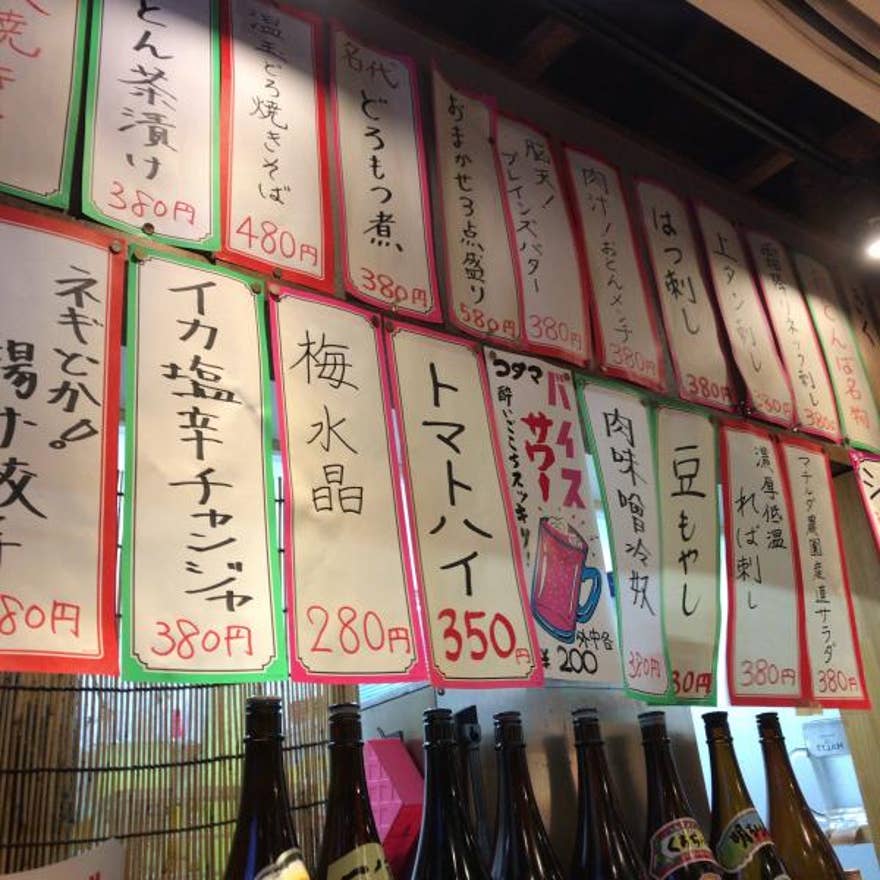 とん茶漬け
380円
塩玉どろ焼きそば
480円
名代
どろもつ煮
380円
おまかせ3点盛り
580円
脳天!
ブレインズバター
380円
肉汁!おとんメンチ
380円
はつ刺し
380円
上タン刺し
380円
霜降りネック刺し
380円
とんぱ名物
ネギどか!
揚げ餃子
80円
イカ塩辛チャンジャ
380円
梅水晶
280円
トマトハイ
350円
コダマ
バイス
サワー
酔いごこちスッキリ!
外中各
¥200
肉味噌冷奴
380円
豆もやし
80円
濃厚低温
ればあ刺し
380円
マチルダ農園産直サラダ
380円